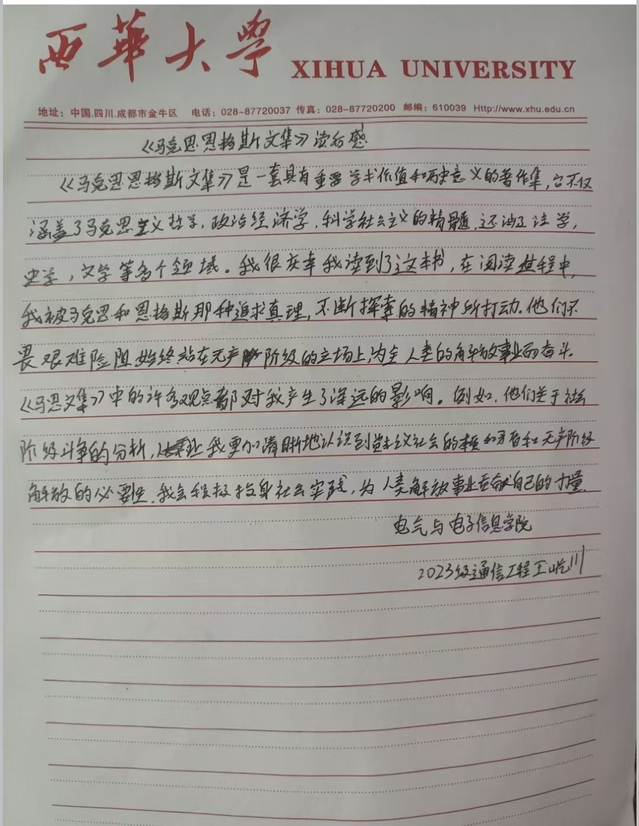 西華大學 XIHUA UNIVERSITY
地址：中国.四川.成都市金牛区 电话：028-87720037 传真：028-87720200 邮编：610039 Http://www.xhu.edu.cn
《马克思恩格斯文集》读后感
《马克思恩格斯文集》是一套具有重要学术价值和历史意义的著作集，它不仅
涵盖了马克思主义哲学，政治经济学，科学社会主义的精髓，还涉及法学，
史学，文学等各个领域。我很庆幸我读到了这本书，在阅读过程中，
我被马克思和恩格斯那种追求真理，不断探索的精神所打动，他们不
畏艰难险阻，始终站在无产阶级的立场上，为全人类的解放事业而奋斗.
《马恩文集》中的许多观点都对我产生了深远的影响。例如，他们关于
阶级斗争的分析，让我更加清晰地认识到资本主义社会的和无产阶级
解放的必要性，我会积极投身社会实践，为人类解放事业贡献自己的力量.
电气与电子信息学院
2023级通信工程王屹川